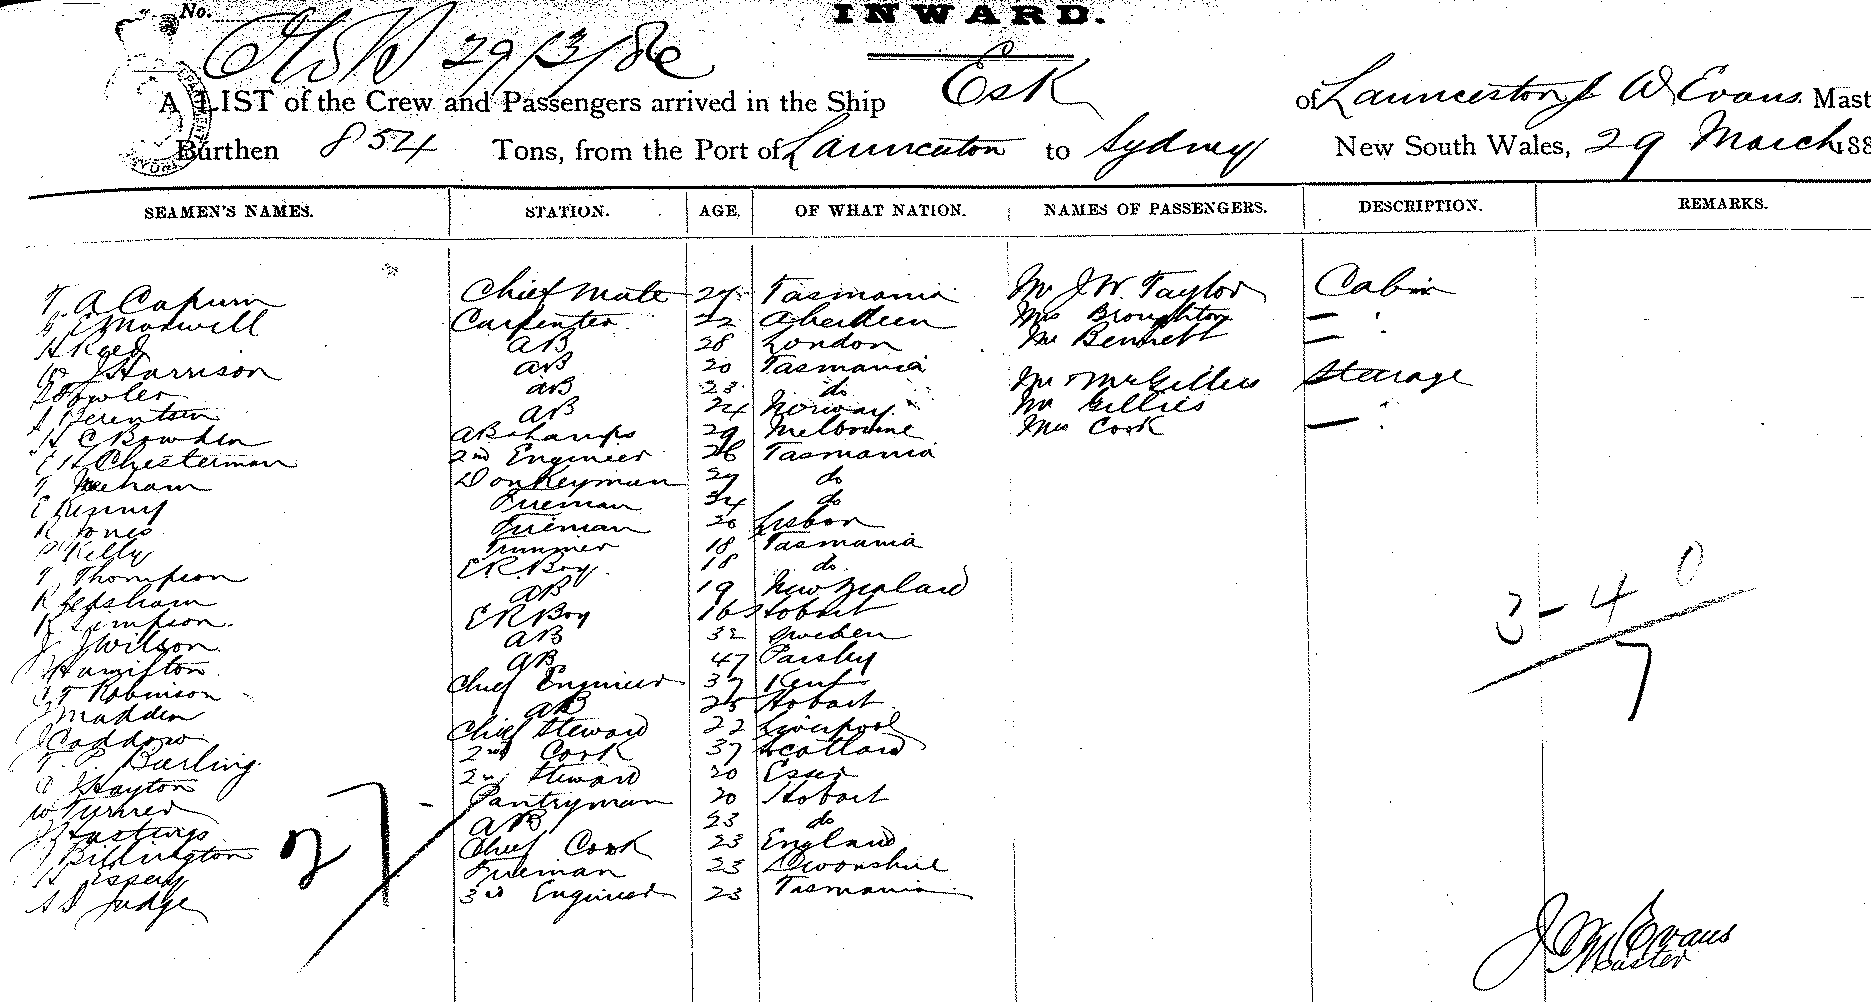 No.
INWARD.
29/3/86
A LIST of the Crew and Passengers arrived in the Ship Esk of Launceston J W Evans Mast
Burthen 854 Tons, from the Port of Launceston to Sydney New South Wales, 29 March 188
SEAMEN'S NAMES. STATION. AGE. OF WHAT NATION. NAMES OF PASSENGERS. DESCRIPTION. REMARKS.
T. A Capurn Chief Mate 27 Tasmania Mr J. W. Taylor Cabin
Maxwell Carpenter 22 Aberdeen Mrs Broughton — "
H Reed AB 28 London Mr Bennett —
W J Harrison AB 20 Tasmania
Fowler AB 23 do Mr & Mrs Gillies Steerage
Berentsen AB 24 Norway Mr Gillies "
H C Bowden AB & Lamps 29 Melbourne Mrs Cook — "
E H Chesterman 2nd Engineer 26 Tasmania
T Meeham Donkeyman 27 do
E Kenny Fireman 34 do
R Jones Fireman 20 Lisbon
P Kelly Trimmer 18 Tasmania
T Thompson E R Boy 18 do
R AB 19 New Zealand
R Simpson E R Boy 16 Hobart
J Wilson AB 32 Sweden
J Hamilton AB 47 Paisley
Robinson Chief Engineer 37 Kent
J Madden AB 25 Hobart
J Caddow Chief Steward 22 Liverpool
Burling 2nd Cook 37 Scotland
Hayton 2nd Steward 20 Essex
W Turner Pantryman 20 Hobart
J Hastings AB 23 do
J Billington Chief Cook 23 England
H Essery Fireman 23 Devonshire
A S Judge 3rd Engineer 23 Tasmania
27
3 - 4 0
7
J W Evans
Master